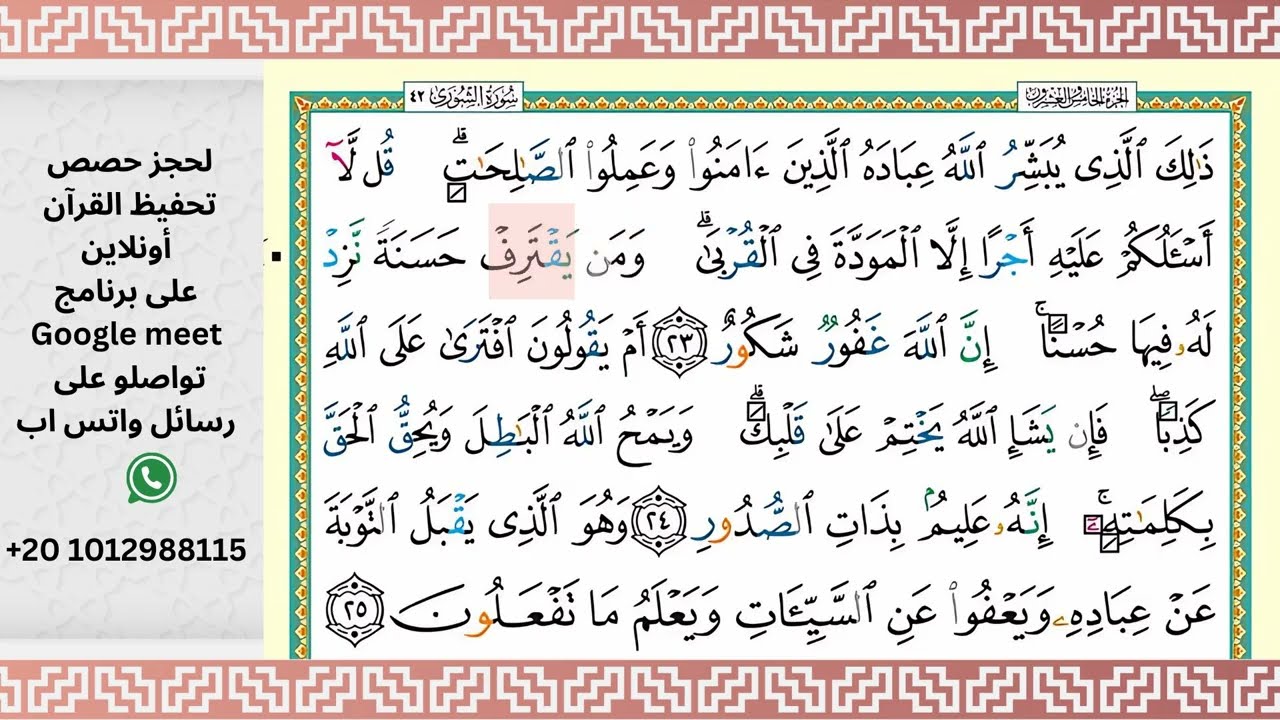 سُورَةُ الشُّورَىٰ ٤٢
الجزء الخامس والعشرون
ذَٰلِكَ ٱلَّذِى يُبَشِّرُ ٱللَّهُ عِبَادَهُ ٱلَّذِينَ ءَامَنُوا۟ وَعَمِلُوا۟ ٱلصَّٰلِحَٰتِۗ قُل لَّآ
أَسْـَٔلُكُمْ عَلَيْهِ أَجْرًا إِلَّا ٱلْمَوَدَّةَ فِى ٱلْقُرْبَىٰۗ وَمَن يَقْتَرِفْ حَسَنَةً نَّزِدْ
لَهُۥ فِيهَا حُسْنًاۚ إِنَّ ٱللَّهَ غَفُورٌ شَكُورٌ ٢٣ أَمْ يَقُولُونَ ٱفْتَرَىٰ عَلَى ٱللَّهِ
كَذِبًاۖ فَإِن يَشَإِ ٱللَّهُ يَخْتِمْ عَلَىٰ قَلْبِكَۗ وَيَمْحُ ٱللَّهُ ٱلْبَٰطِلَ وَيُحِقُّ ٱلْحَقَّ
بِكَلِمَٰتِهِۦٓۚ إِنَّهُۥ عَلِيمٌۢ بِذَاتِ ٱلصُّدُورِ ٢٤ وَهُوَ ٱلَّذِى يَقْبَلُ ٱلتَّوْبَةَ
عَنْ عِبَادِهِۦ وَيَعْفُوا۟ عَنِ ٱلسَّيِّـَٔاتِ وَيَعْلَمُ مَا تَفْعَلُونَ ٢٥
لحجز حصص
تحفيظ القرآن
أونلاين
على برنامج
Google meet
تواصلو على
رسائل واتس اب
+20 1012988115